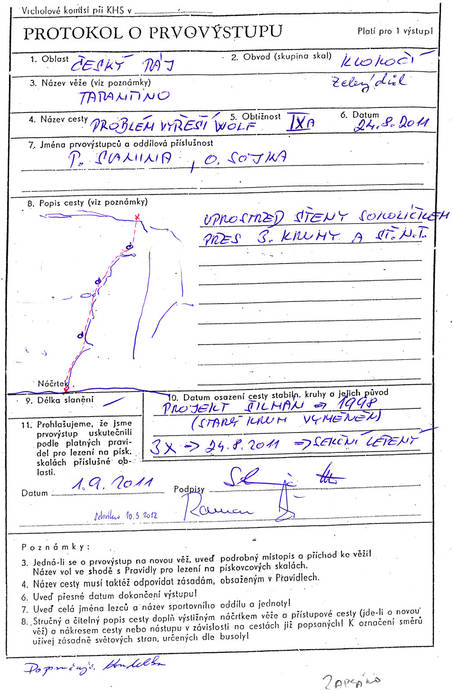 Vrcholové komisi při KHS v
PROTOKOL O PRVOVÝSTUPU
Platí pro 1 výstup!
1. Oblast ČESKÝ RÁJ
2. Obvod (skupina skal) KLOKOČÍ
Zelený důl
3. Název věže (viz poznámky)
TARANTINO
4. Název cesty PROBLÉM VYŘEŠÍ WOLF 5. Obtížnost IXa 6. Datum 24.8.2011
7. Jména prvovýstupců a oddílová příslušnost
P. SLANINA, O. SOJKA
8. Popis cesty (viz poznámky)
UPROSTŘED STĚNY SOKOLÍČKEM
PŘES 3. KRUHY A STĚ.N.T.
Náčrtek
9. Délka slanění
10. Datum osazení cesty stabiln. kruhy a jejich původ
PROJEKT ŠILHAN → 1998
(STARÝ KRUH VYMĚNĚN)
3X → 24.8.2011 → SERIÓNÍ LEPENÝ
11. Prohlašujeme, že jsme
prvovýstup uskutečnili
podle platných pravi-
del pro lezení na písk.
skalách příslušné ob-
lasti.
Datum 1.9.2011 Podpisy
10.3.2012
Poznámky:
3. Jedná-li se o prvovýstup na novou věž, uveď podrobný místopis a příchod ke věži!
Název vol ve shodě s Pravidly pro lezení na pískovcových skalách.
4. Název cesty musí taktéž odpovídat zásadám, obsaženým v Pravidlech.
6. Uveď přesné datum dokončení výstupu!
7. Uveď celá jména lezců a název sportovního oddílu a jednoty!
8. Stručný a čitelný popis cesty doplň výstižným náčrtkem věže a přístupové cesty (jde-li o novou
věž) a nákresem cesty nebo nástupu v závislosti na cestách již popsaných! K označení směrů
užívej zásadně světových stran, určených dle busoly!
ZAPSÁNO